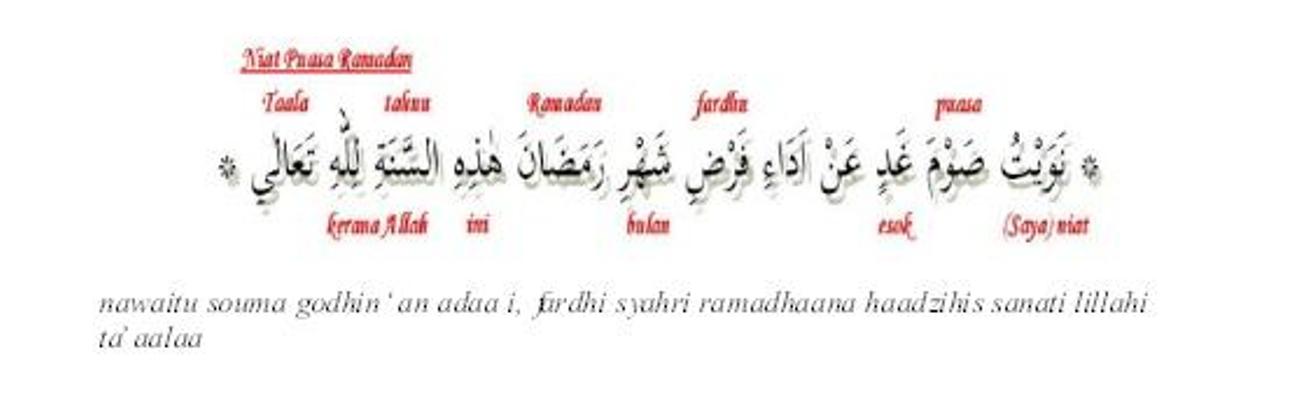 Niat Puasa Ramadan
Taala tahun Ramadan fardhu puasa
* نَوَيْتُ صَوْمَ غَدٍ عَنْ اَدَاءِ فَرْضِ شَهْرِ رَمَضَانَ هٰذِهِ السَّنَةِ لِلّٰهِ تَعَالٰي *
kerana Allah ini bulan esok (Saya) niat
nawaitu souma godhin ‘ an adaa i, fardhi syahri ramadhaana haadzihis sanati lillahi
ta’ aalaa